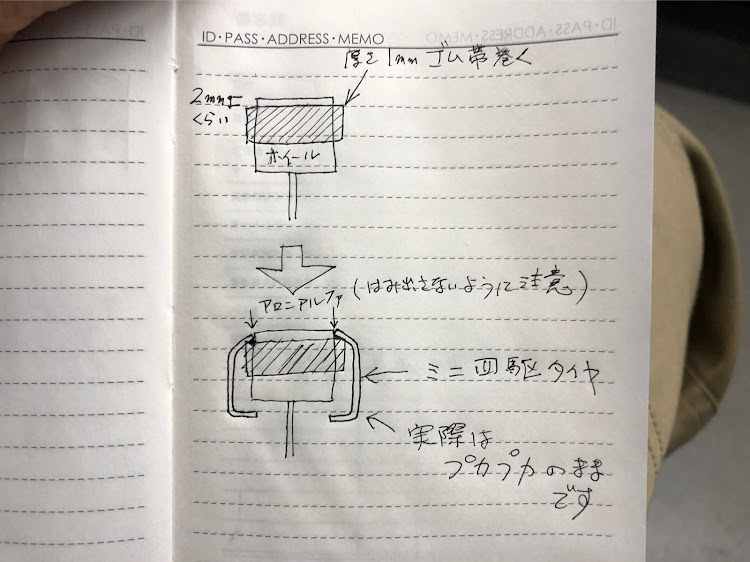 ID・PASS・ADDRESS・MEMO
厚さ1mm ゴム帯巻く
2mm
くらい
ホイール
アロンアルファ (はみ出さないように注意)
ミニ四駆タイヤ
実際は
プカプカのまま
です